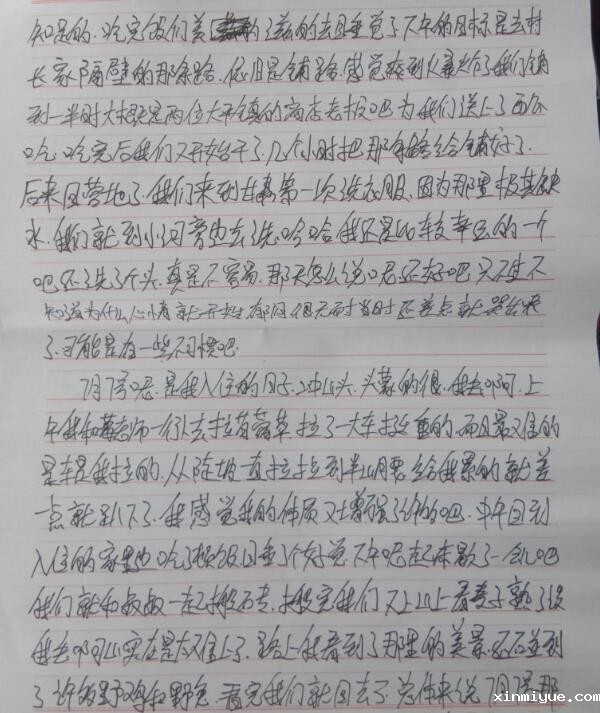 知是的. 吃完饭们美的滋滋的去回睡觉了下午的目标是去村
长家隔壁的那条路. 依旧是铺路. 感觉爽到火暴啦了我们铺
到一半时大概是两位太平镇的商店老板吧 为我们送上了西瓜
吃. 吃完后我们又开始干了. 几个小时把那条路给铺好了.
后来回营地了. 我们来到甘肃第一次洗衣服. 因为那里极其缺
水. 我们就到小河旁边去洗. 哈哈我还是比较幸运的一个
吧还洗了个头. 真是不容易. 那天怎么说呢还好吧 只不过不
知道为什么心情就一开始 有阴 但天而时 当时还差点就哭出来
了. 可能是有一些不习惯吧.
7月7号呢. 是我入住的日子. 上山头. 头蒙的很. 我去啊啊. 上
午我和老师一行去拉苜蓿草. 拉了一大车挺重的. 而且最难的
是车是我拉的. 从陡坡一直拉拉到半山腰 给我累的就差
一点就趴下了. 我感觉我的体质又增强了许的吧. 中午回到
入住的家里边吃了顿饭回睡了个好觉 下午呢起床歇了一会儿吧
我们就和叔叔一起去搬石砖. 搬完我们又上山上看麦子熟了没
我去啊啊山实在是太难上了. 路上我看到了那里的美景. 还碰到
了许多野鸡和野兔. 看完我们就回去了. 总体来说 7月7号那
xinmiyue.com